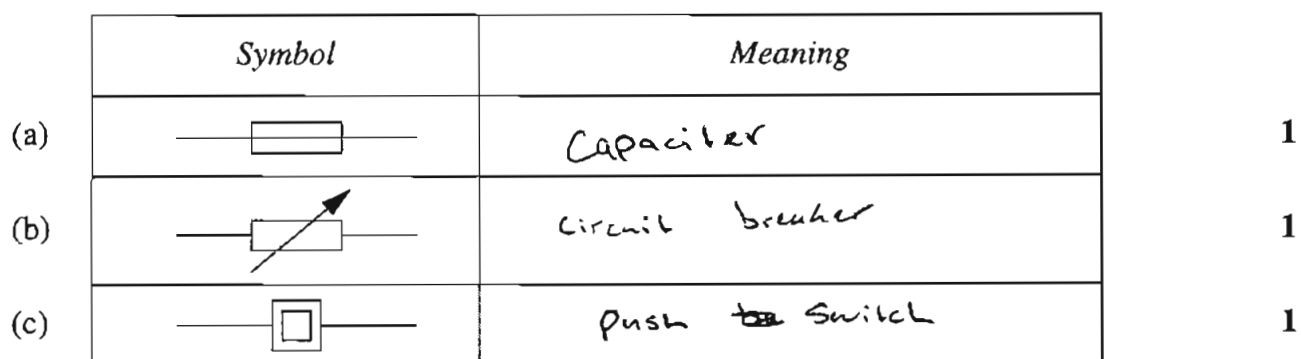 Symbol Meaning
(a) Capaciter 1
(b) circuit breaker 1
(c) push switch 1